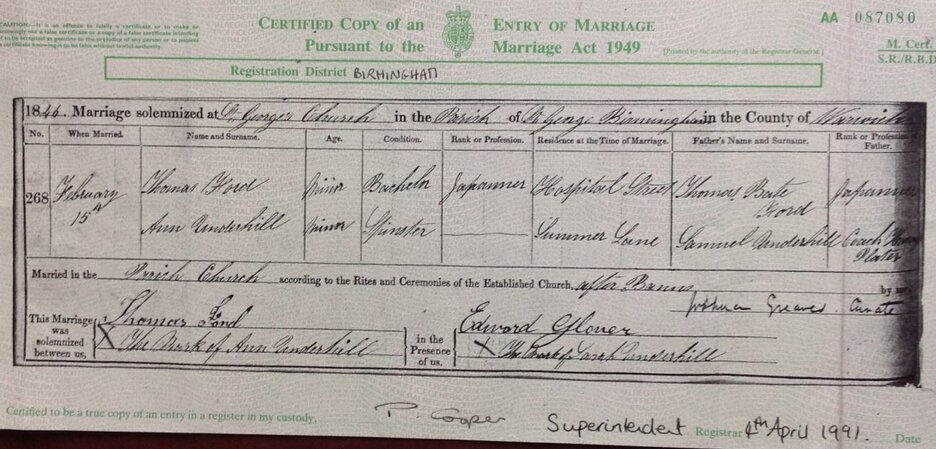 CAUTION:—It is an offence to falsify a certificate or to make or
knowingly use a false certificate or a copy of a false certificate intending
it to be accepted as genuine to the prejudice of any person or to possess
a certificate knowing it to be false without lawful authority.
CERTIFIED COPY of an ENTRY OF MARRIAGE
Pursuant to the Marriage Act 1949
AA 087080
[Printed by the authority of the Registrar General]
M. Cert.
S.R./R.B.D
Registration District BIRMINGHAM
1846. Marriage solemnized at St. George's Church in the Parish of St. George Birmingham in the County of Warwick
No. When Married. Name and Surname. Age. Condition. Rank or Profession. Residence at the Time of Marriage. Father's Name and Surname. Rank or Profession Father.
268 February 15th Thomas Ford Minor Bachelor Japanner Hospital Street Thomas Bate Ford Japanner
Ann Underhill Minor Spinster Summer Lane Samuel Underhill Coach Plater
Married in the Parish Church according to the Rites and Ceremonies of the Established Church, after Banns by me
Joshua Greaves Curate
This Marriage was solemnized between us, Thomas Ford
X The Mark of Ann Underhill
in the Presence of us. Edward Glover
X The Mark of Sarah Underhill
Certified to be a true copy of an entry in a register in my custody,
P. Cooper Superintendent Registrar 4th April 1991. Date